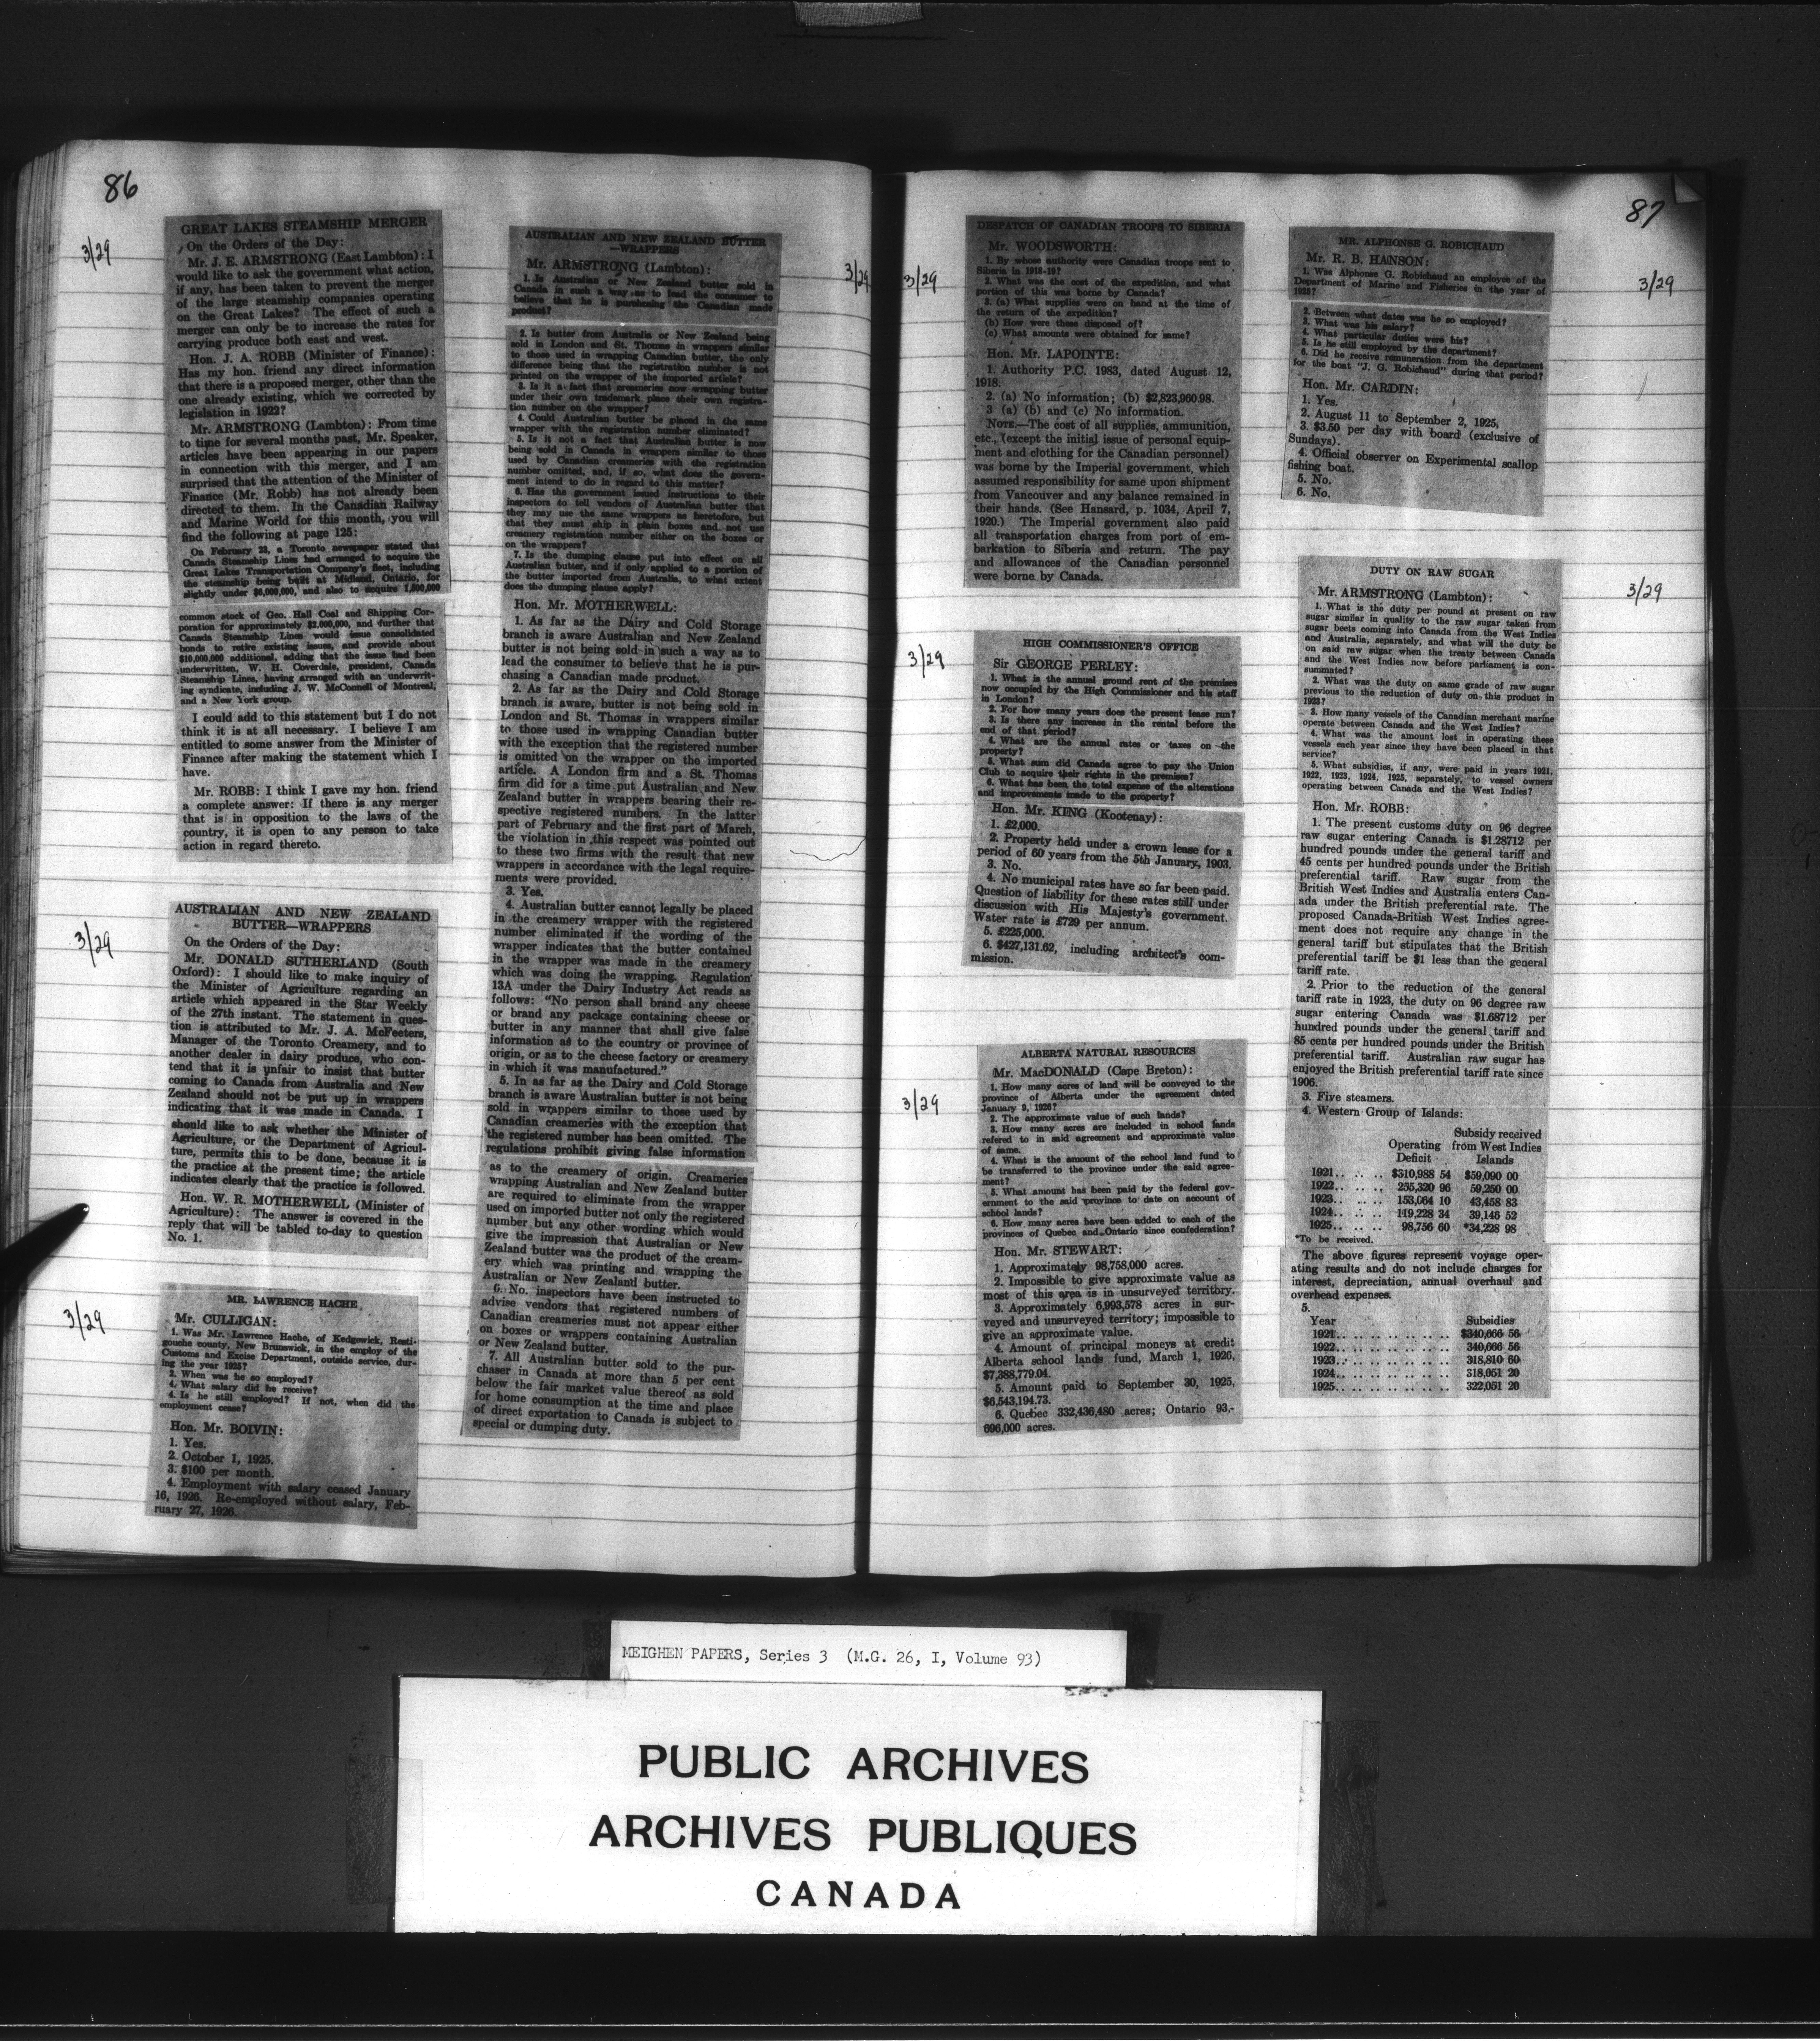 86
3/29
GREAT LAKES STEAMSHIP MERGER
On the Orders of the Day:
Mr. J. E. ARMSTRONG (East Lambton): I
would like to ask the government what action,
if any, has been taken to prevent the merger
of the large steamship companies operating
on the Great Lakes? The effect of such a
merger can only be to increase the rates for
carrying produce both east and west.
Hon. J. A. ROBB (Minister of Finance):
Has my hon. friend any direct information
that there is a proposed merger, other than the
one already existing, which we corrected by
legislation in 1922?
Mr. ARMSTRONG (Lambton): From time
to time for several months past, Mr. Speaker,
articles have been appearing in our papers
in connection with this merger, and I am
surprised that the attention of the Minister of
Finance (Mr. Robb) has not already been
directed to them. In the Canadian Railway
and Marine World for this month, you will
find the following at page 125:
On February 23, a Toronto newspaper stated that
Canada Steamship Lines had arranged to acquire the
Great Lakes Transportation Company's fleet, including
the steamship being built at Midland, Ontario, for
slightly under $6,000,000, and also to acquire 1,500,000
common stock of Geo. Hall Coal and Shipping Cor-
poration for approximately $2,000,000, and further that
Canada Steamship Lines would issue consolidated
bonds to retire existing issues, and provide about
$10,000,000 additional, adding that the issue had been
underwritten, W. H. Coverdale, president, Canada
Steamship Lines, having arranged with an underwrit-
ing syndicate, including J. W. McConnell of Montreal,
and a New York group.
I could add to this statement but I do not
think it is at all necessary. I believe I am
entitled to some answer from the Minister of
Finance after making the statement which I
have.
Mr. ROBB: I think I gave my hon. friend
a complete answer: If there is any merger
that is in opposition to the laws of the
country, it is open to any person to take
action in regard thereto.
3/29
AUSTRALIAN AND NEW ZEALAND
BUTTER—WRAPPERS
On the Orders of the Day:
Mr. DONALD SUTHERLAND (South
Oxford): I should like to make inquiry of
the Minister of Agriculture regarding an
article which appeared in the Star Weekly
of the 27th instant. The statement in ques-
tion is attributed to Mr. J. A. McFeeters,
Manager of the Toronto Creamery, and to
another dealer in dairy produce, who con-
tend that it is unfair to insist that butter
coming to Canada from Australia and New
Zealand should not be put up in wrappers
indicating that it was made in Canada. I
should like to ask whether the Minister of
Agriculture, or the Department of Agricul-
ture, permits this to be done, because it is
the practice at the present time; the article
indicates clearly that the practice is followed.
Hon. W. R. MOTHERWELL (Minister of
Agriculture): The answer is covered in the
reply that will be tabled to-day to question
No. 1.
3/29
MR. LAWRENCE HACHE
Mr. CULLIGAN:
1. Was Mr. Lawrence Hache, of Kedgewick, Resti-
gouche county, New Brunswick, in the employ of the
Customs and Excise Department, outside service, dur-
ing the year 1925?
2. When was he so employed?
4. What salary did he receive?
4. Is he still employed? If not, when did the
employment cease?
Hon. Mr. BOIVIN:
1. Yes.
2. October 1, 1925.
3. $100 per month.
4. Employment with salary ceased January
16, 1926. Re-employed without salary, Feb-
ruary 27, 1926.
3/29
AUSTRALIAN AND NEW ZEALAND BUTTER
—WRAPPERS
Mr. ARMSTRONG (Lambton):
1. Is Australian or New Zealand butter sold in
Canada in such a way as to lead the consumer to
believe that he is purchasing the Canadian made
product?
2. Is butter from Australia or New Zealand being
sold in London and St. Thomas in wrappers similar
to those used in wrapping Canadian butter, the only
difference being that the registration number is not
printed on the wrapper of the imported article?
3. Is it a fact that creameries now wrapping butter
under their own trademark place their own registra-
tion number on the wrapper?
4. Could Australian butter be placed in the same
wrapper with the registration number eliminated?
5. Is it not a fact that Australian butter is now
being sold in Canada in wrappers similar to those
used by Canadian creameries with the registration
number omitted, and, if so, what does the govern-
ment intend to do in regard to this matter?
6. Has the government issued instructions to their
inspectors to tell vendors of Australian butter that
they may use the same wrappers as heretofore, but
that they must ship in plain boxes and not use
creamery registration number either on the boxes or
on the wrappers?
7. Is the dumping clause put into effect on all
Australian butter, and if only applied to a portion of
the butter imported from Australia, to what extent
does the dumping clause apply?
Hon. Mr. MOTHERWELL:
1. As far as the Dairy and Cold Storage
branch is aware Australian and New Zealand
butter is not being sold in such a way as to
lead the consumer to believe that he is pur-
chasing a Canadian made product.
2. As far as the Dairy and Cold Storage
branch is aware, butter is not being sold in
London and St. Thomas in wrappers similar
to those used in wrapping Canadian butter
with the exception that the registered number
is omitted on the wrapper on the imported
article. A London firm and a St. Thomas
firm did for a time put Australian and New
Zealand butter in wrappers bearing their re-
spective registered numbers. In the latter
part of February and the first part of March,
the violation in this respect was pointed out
to these two firms with the result that new
wrappers in accordance with the legal require-
ments were provided.
3. Yes.
4. Australian butter cannot legally be placed
in the creamery wrapper with the registered
number eliminated if the wording of the
wrapper indicates that the butter contained
in the wrapper was made in the creamery
which was doing the wrapping. Regulation
13A under the Dairy Industry Act reads as
follows: "No person shall brand any cheese
or brand any package containing cheese or
butter in any manner that shall give false
information as to the country or province of
origin, or as to the cheese factory or creamery
in which it was manufactured."
5. In as far as the Dairy and Cold Storage
branch is aware Australian butter is not being
sold in wrappers similar to those used by
Canadian creameries with the exception that
the registered number has been omitted. The
regulations prohibit giving false information
as to the creamery of origin. Creameries
wrapping Australian and New Zealand butter
are required to eliminate from the wrapper
used on imported butter not only the registered
number but any other wording which would
give the impression that Australian or New
Zealand butter was the product of the cream-
ery which was printing and wrapping the
Australian or New Zealand butter.
6. No. inspectors have been instructed to
advise vendors that registered numbers of
Canadian creameries must not appear either
on boxes or wrappers containing Australian
or New Zealand butter.
7. All Australian butter sold to the pur-
chaser in Canada at more than 5 per cent
below the fair market value thereof as sold
for home consumption at the time and place
of direct exportation to Canada is subject to
special or dumping duty.
87
3/29
DESPATCH OF CANADIAN TROOPS TO SIBERIA
Mr. WOODSWORTH:
1. By whose authority were Canadian troops sent to
Siberia in 1918-19?
2. What was the cost of the expedition, and what
portion of this was borne by Canada?
3. (a) What supplies were on hand at the time of
the return of the expedition?
(b) How were these disposed of?
(c) What amounts were obtained for same?
Hon. Mr. LAPOINTE:
1. Authority P.C. 1983, dated August 12,
1918.
2. (a) No information; (b) $2,823,960.98.
3 (a) (b) and (c) No information.
NOTE.—The cost of all supplies, ammunition,
etc., (except the initial issue of personal equip-
ment and clothing for the Canadian personnel)
was borne by the Imperial government, which
assumed responsibility for same upon shipment
from Vancouver and any balance remained in
their hands. (See Hansard, p. 1034, April 7,
1920.) The Imperial government also paid
all transportation charges from port of em-
barkation to Siberia and return. The pay
and allowances of the Canadian personnel
were borne by Canada.
3/29
HIGH COMMISSIONER'S OFFICE
Sir GEORGE PERLEY:
1. What is the annual ground rent of the premises
now occupied by the High Commissioner and his staff
in London?
2. For how many years does the present lease run?
3. Is there any increase in the rental before the
end of that period?
4. What are the annual rates or taxes on the
property?
5. What sum did Canada agree to pay the Union
Club to acquire their rights in the premises?
6. What has been the total expense of the alterations
and improvements made to the property?
Hon. Mr. KING (Kootenay):
1. £2,000.
2. Property held under a crown lease for a
period of 60 years from the 5th January, 1903.
3. No.
4. No municipal rates have so far been paid.
Question of liability for these rates still under
discussion with His Majesty's government.
Water rate is £729 per annum.
5. £225,000.
6. $427,131.62, including architect's com-
mission.
3/29
ALBERTA NATURAL RESOURCES
Mr. MacDONALD (Cape Breton):
1. How many acres of land will be conveyed to the
province of Alberta under the agreement dated
January 9, 1926?
2. The approximate value of such lands?
3. How many acres are included in school lands
refered to in said agreement and approximate value
of same.
4. What is the amount of the school land fund to
be transferred to the province under the said agree-
ment?
5. What amount has been paid by the federal gov-
ernment to the said province to date on account of
school lands?
6. How many acres have been added to each of the
provinces of Quebec and Ontario since confederation?
Hon. Mr. STEWART:
1. Approximately 98,758,000 acres.
2. Impossible to give approximate value as
most of this area is in unsurveyed territory.
3. Approximately 6,993,578 acres in sur-
veyed and unsurveyed territory; impossible to
give an approximate value.
4. Amount of principal moneys at credit
Alberta school lands fund, March 1, 1926,
$7,388,779.04.
5. Amount paid to September 30, 1925,
$6,543,194.73.
6. Quebec 332,436,480 acres; Ontario 93,-
696,000 acres.
3/29
MR. ALPHONSE G. ROBICHAUD
Mr. R. B. HANSON:
1. Was Alphonse G. Robichaud an employee of the
Department of Marine and Fisheries in the year of
1925?
2. Between what dates was he so employed?
3. What was his salary?
4. What particular duties were his?
5. Is he still employed by the department?
6. Did he receive remuneration from the department
for the boat "J. G. Robichaud" during that period?
Hon. Mr. CARDIN:
1. Yes.
2. August 11 to September 2, 1925,
3. $3.50 per day with board (exclusive of
Sundays).
4. Official observer on Experimental scallop
fishing boat.
5. No.
6. No.
3/29
DUTY ON RAW SUGAR
Mr. ARMSTRONG (Lambton):
1. What is the duty per pound at present on raw
sugar similar in quality to the raw sugar taken from
sugar beets coming into Canada from the West Indies
and Australia, separately, and what will the duty be
on said raw sugar when the treaty between Canada
and the West Indies now before parliament is con-
summated?
2. What was the duty on same grade of raw sugar
previous to the reduction of duty on this product in
1923?
3. How many vessels of the Canadian merchant marine
operate between Canada and the West Indies?
4. What was the amount lost in operating these
vessels each year since they have been placed in that
service?
5. What subsidies, if any, were paid in years 1921,
1922, 1923, 1924, 1925, separately, to vessel owners
operating between Canada and the West Indies?
Hon. Mr. ROBB:
1. The present customs duty on 96 degree
raw sugar entering Canada is $1.28712 per
hundred pounds under the general tariff and
45 cents per hundred pounds under the British
preferential tariff. Raw sugar from the
British West Indies and Australia enters Can-
ada under the British preferential rate. The
proposed Canada-British West Indies agree-
ment does not require any change in the
general tariff but stipulates that the British
preferential tariff be $1 less than the general
tariff rate.
2. Prior to the reduction of the general
tariff rate in 1923, the duty on 96 degree raw
sugar entering Canada was $1.68712 per
hundred pounds under the general tariff and
85 cents per hundred pounds under the British
preferential tariff. Australian raw sugar has
enjoyed the British preferential tariff rate since
1906.
3. Five steamers.
4. Western Group of Islands:
Subsidy received
Operating from West Indies
Deficit Islands
1921.. .. .. $310,988 54 $59,090 00
1922.. .. .. 255,320 96 59,250 00
1923.. .. .. 153,064 10 43,458 83
1924.. .. .. 119,228 34 39,146 52
1925.. .. .. 98,756 60 *34,228 98
*To be received.
The above figures represent voyage oper-
ating results and do not include charges for
interest, depreciation, annual overhaul and
overhead expenses.
5.
Year Subsidies
1921.. .. .. .. .. .. .. $340,666 56
1922.. .. .. .. .. .. .. 340,666 56
1923.. .. .. .. .. .. .. 318,810 60
1924.. .. .. .. .. .. .. 318,051 20
1925.. .. .. .. .. .. .. 322,051 20
MEIGHEN PAPERS, Series 3 (M.G. 26, I, Volume 93)
PUBLIC ARCHIVES
ARCHIVES PUBLIQUES
CANADA